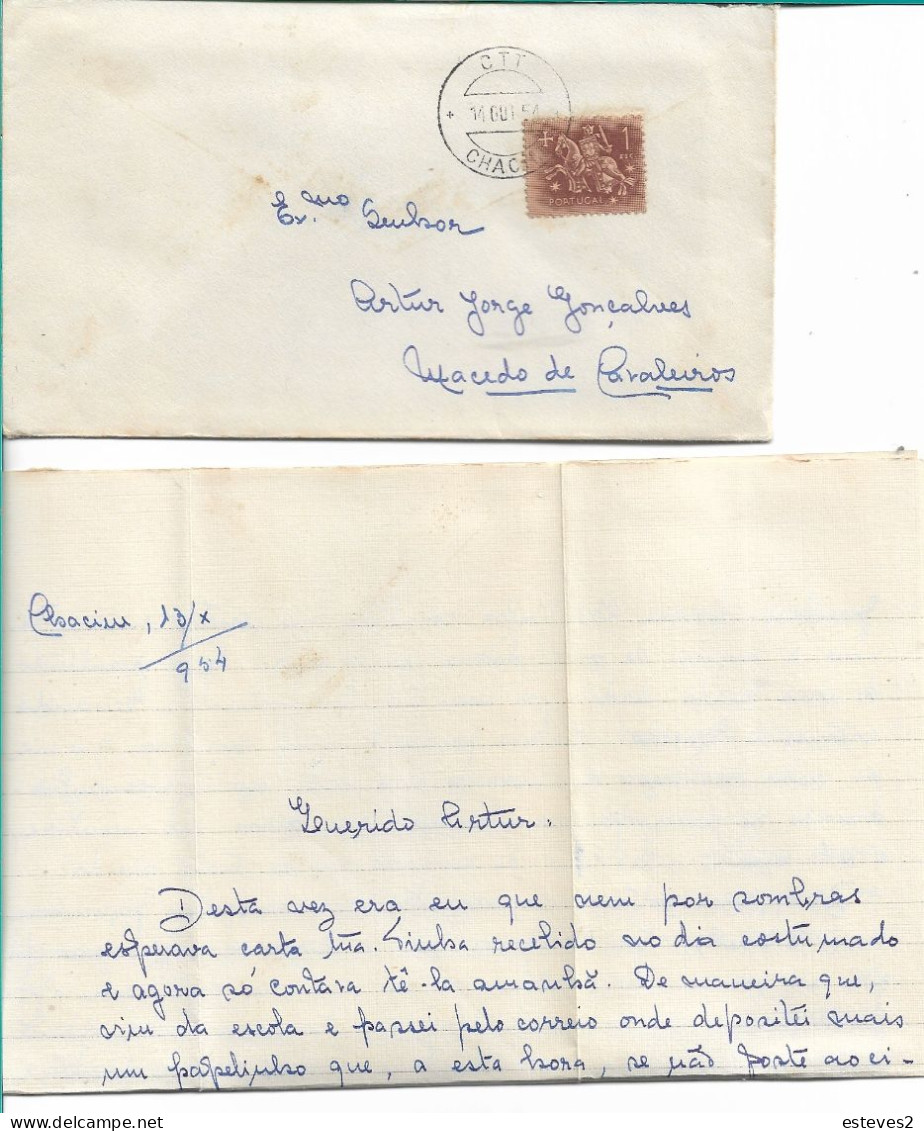 CTT
14 OUT 54
CHAC
1
ESC
PORTUGAL
Ex.mo Senhor
Artur Jorge Gonçalves
Macedo de Cavaleiros
Chacim, 13/X
954
Querido Artur.
Desta vez era eu que nem por sombras
esperava carta tua. Tinha recebido no dia costumado
e agora só contava tê-la amanhã. De maneira que,
vim da escola e passei pelo correio onde depositei mais
um papelinho que, a esta hora, se não foste ao ci-
esteves2